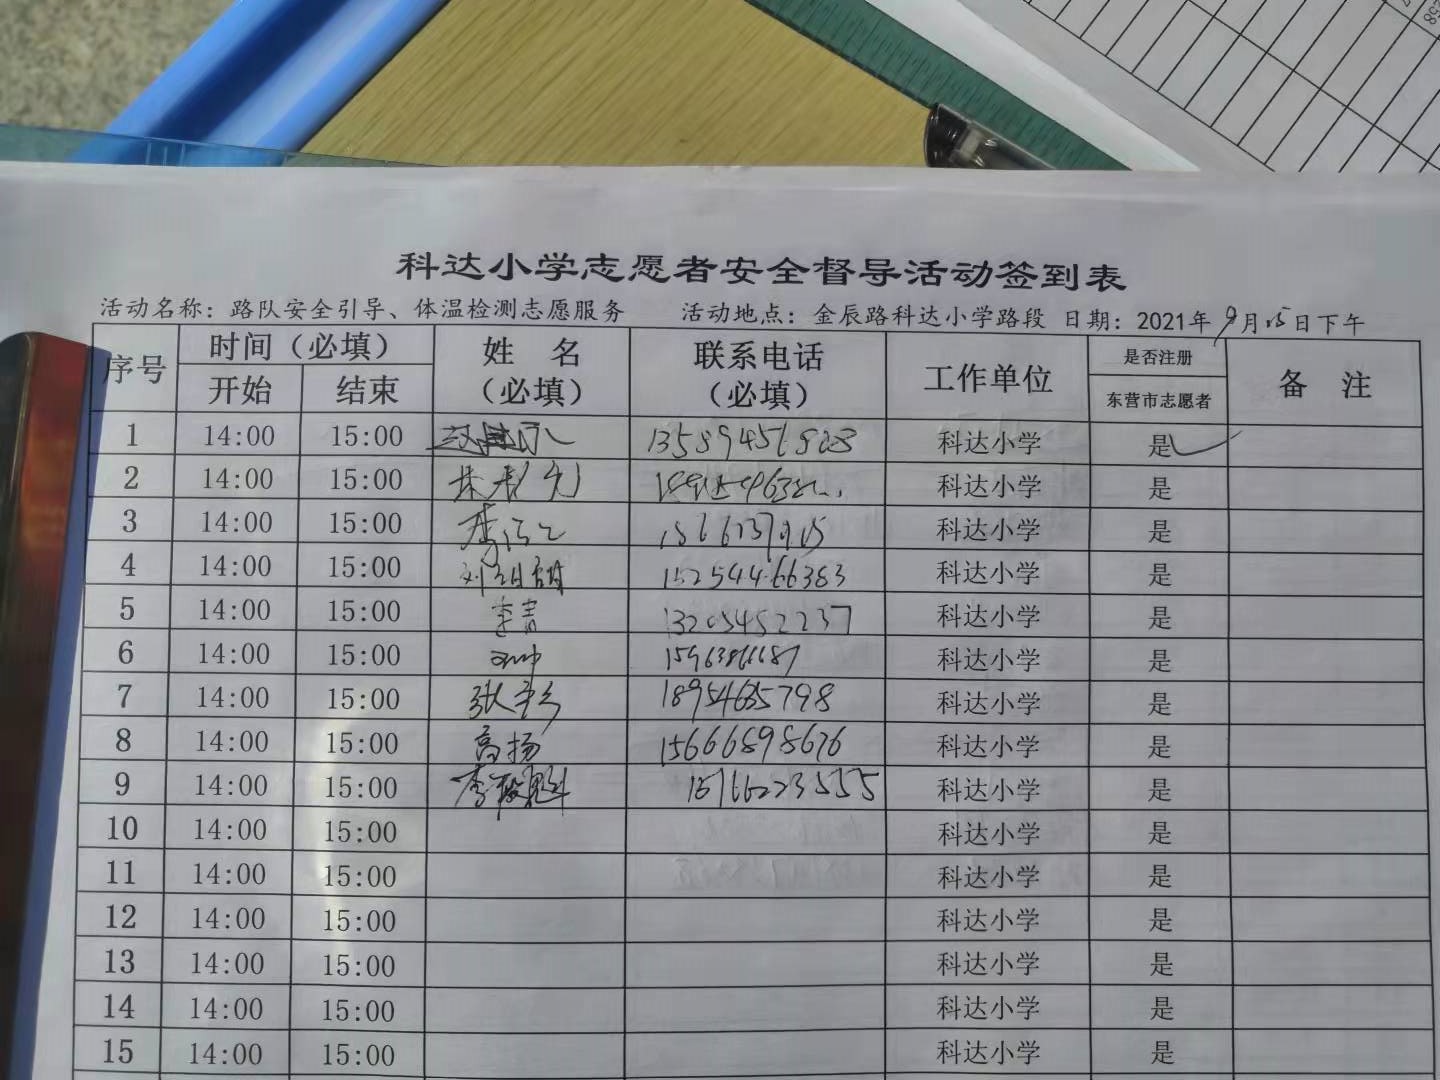 科达小学志愿者安全督导活动签到表
活动名称：路队安全引导、体温检测志愿服务 活动地点：金辰路科达小学路段 日期：2021年9月15日下午
序号 时间（必填） 姓 名（必填） 联系电话（必填） 工作单位 是否注册 备 注
开始 结束 东营市志愿者
1 14:00 15:00 科达小学 是
2 14:00 15:00 科达小学 是
3 14:00 15:00 科达小学 是
4 14:00 15:00 15254466383 科达小学 是
5 14:00 15:00 李青 13205452237 科达小学 是
6 14:00 15:00 科达小学 是
7 14:00 15:00 张彩 18954635798 科达小学 是
8 14:00 15:00 高扬 15666898676 科达小学 是
9 14:00 15:00 科达小学 是
10 14:00 15:00 科达小学 是
11 14:00 15:00 科达小学 是
12 14:00 15:00 科达小学 是
13 14:00 15:00 科达小学 是
14 14:00 15:00 科达小学 是
15 14:00 15:00 科达小学 是